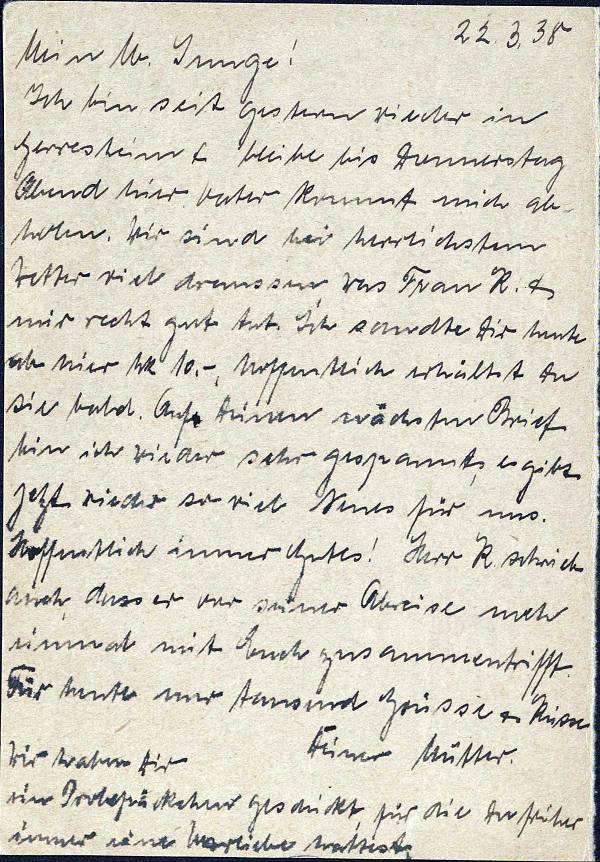 22.3.38
Mein lb. Junge!
Ich bin seit gestern wieder in
Gerresheim & bleibe bis Donnerstag
Abend hier. Vater kommt mich ab-
holen. Wir sind bei herrlichstem
Wetter viel draussen was Frau K. &
mir recht gut tut. Ich sandte Dir heute
ab hier Mk 10.-, hoffentlich erhältst Du
sie bald. Auf Deinen nächsten Brief
bin ich wieder sehr gespannt, es gibt
jetzt wieder so viel Neues für uns.
Hoffentlich immer Gutes! Herr K. schrieb
auch, dass er vor seiner Abreise noch
einmal mit Euch zusammentrifft.
Für heute nur tausend Grüsse & Küsse
Deiner Mutter.
Wir haben Dir
ein Probepäckchen geschickt, für die Du früher
immer eine Vorliebe hattest.